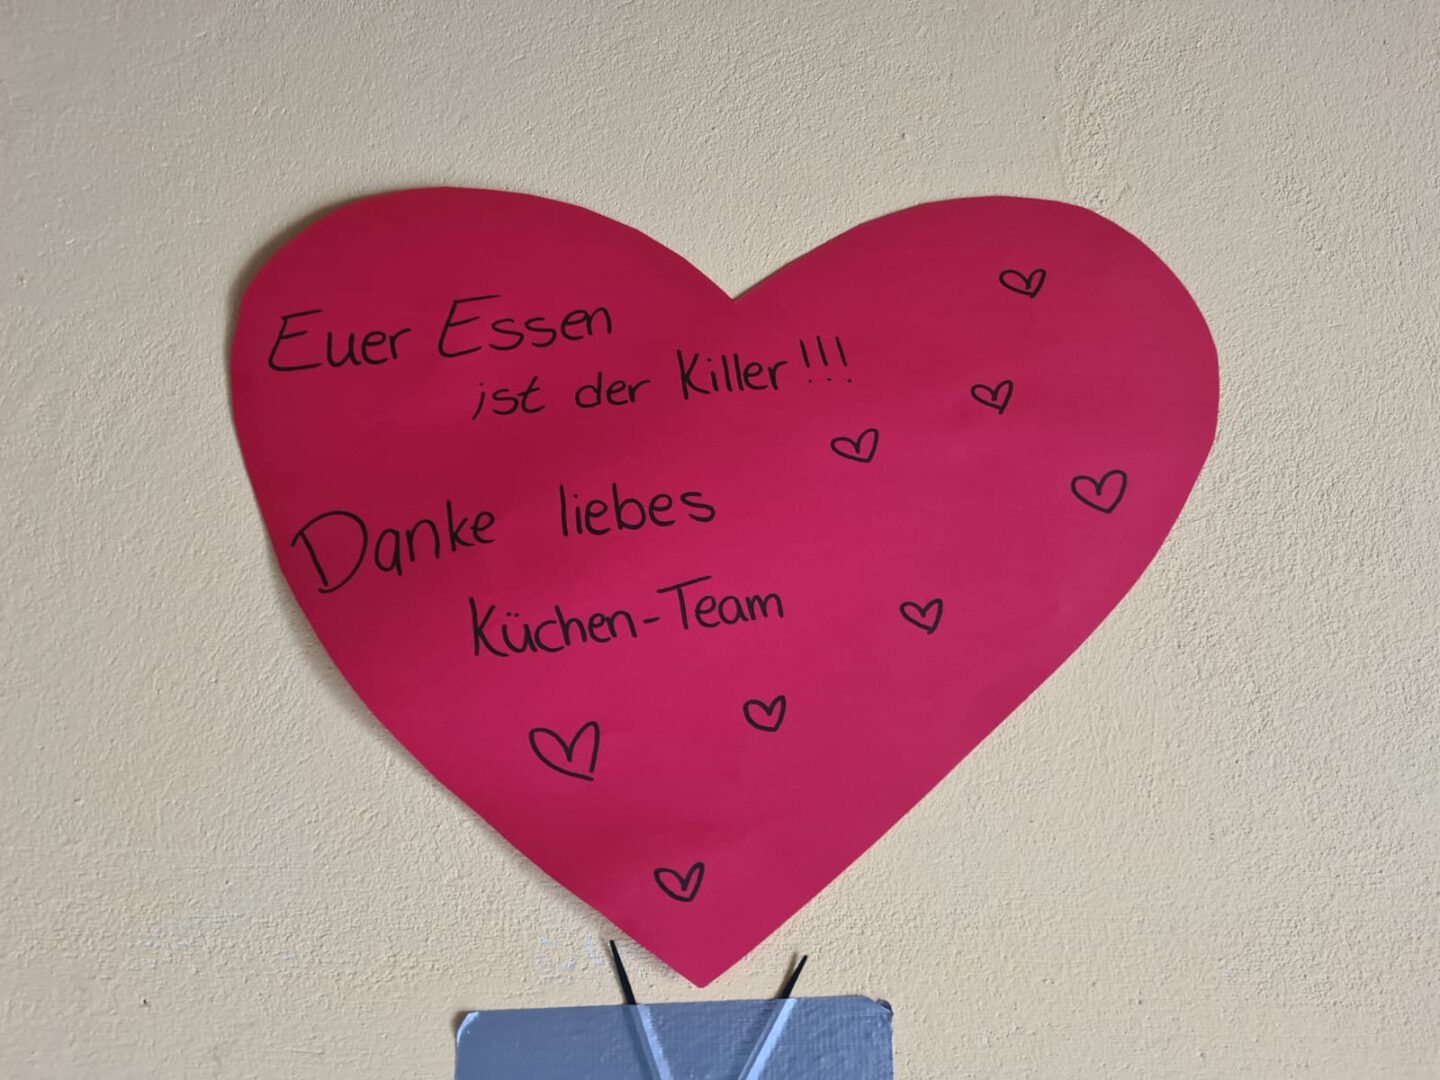 Euer Essen
ist der Killer!!!
Danke liebes
Küchen-Team